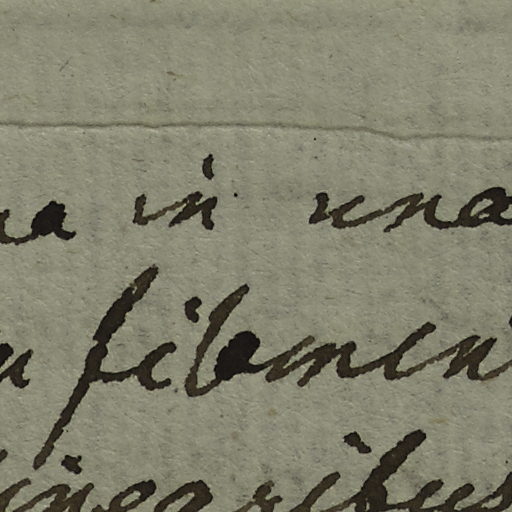 in una
filamen
inearibus